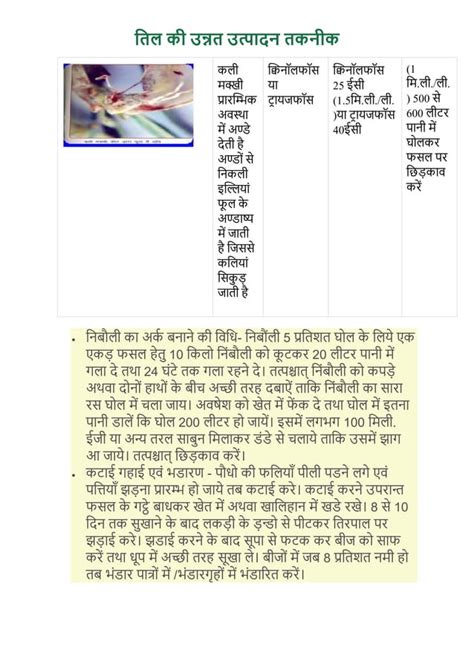 तिल की उन्नत उत्पादन तकनीक
कली
मक्खी
प्रारम्भिक
अवस्था
में अण्डे
देती है
अण्डों से
निकली
इल्लियां
फूल के
अण्डाष्य
में जाती
है जिससे
कलियां
सिकुड़
जाती है
क्विनॉलफॉस
या
ट्रायजफॉस
क्विनॉलफॉस
25 ईसी
(1.5मि.ली./ली.
)या ट्रायजफॉस
40ईसी
(1
मि.ली./ली.
) 500 से
600 लीटर
पानी में
घोलकर
फसल पर
छिड़काव
करें
• निबौली का अर्क बनाने की विधि- निबौंली 5 प्रतिशत घोल के लिये एक
एकड़ फसल हेतु 10 किलो निंबौली को कूटकर 20 लीटर पानी में
गला दे तथा 24 घंटे तक गला रहने दे। तत्पश्चात् निंबौली को कपड़े
अथवा दोनों हाथों के बीच अच्छी तरह दबाऐं ताकि निंबौली का सारा
रस घोल में चला जाय। अवषेश को खेत में फेंक दे तथा घोल में इतना
पानी डालें कि घोल 200 लीटर हो जायें। इसमें लगभग 100 मिली.
ईजी या अन्य तरल साबुन मिलाकर डंडे से चलाये ताकि उसमें झाग
आ जाये। तत्पश्चात् छिड़काव करें।
• कटाई गहाई एवं भडारण - पौधो की फलियाँ पीली पडने लगे एवं
पत्तियाँ झड़ना प्रारम्भ हो जाये तब कटाई करे। कटाई करने उपरान्त
फसल के गट्ठे बाधकर खेत में अथवा खालिहान में खडे रखे। 8 से 10
दिन तक सुखाने के बाद लकड़ी के ड़न्डो से पीटकर तिरपाल पर
झड़ाई करे। झडाई करने के बाद सूपा से फटक कर बीज को साफ
करें तथा धूप में अच्छी तरह सूखा ले। बीजों में जब 8 प्रतिशत नमी हो
तब भंडार पात्रों में /भंडारगृहों में भंडारित करें।